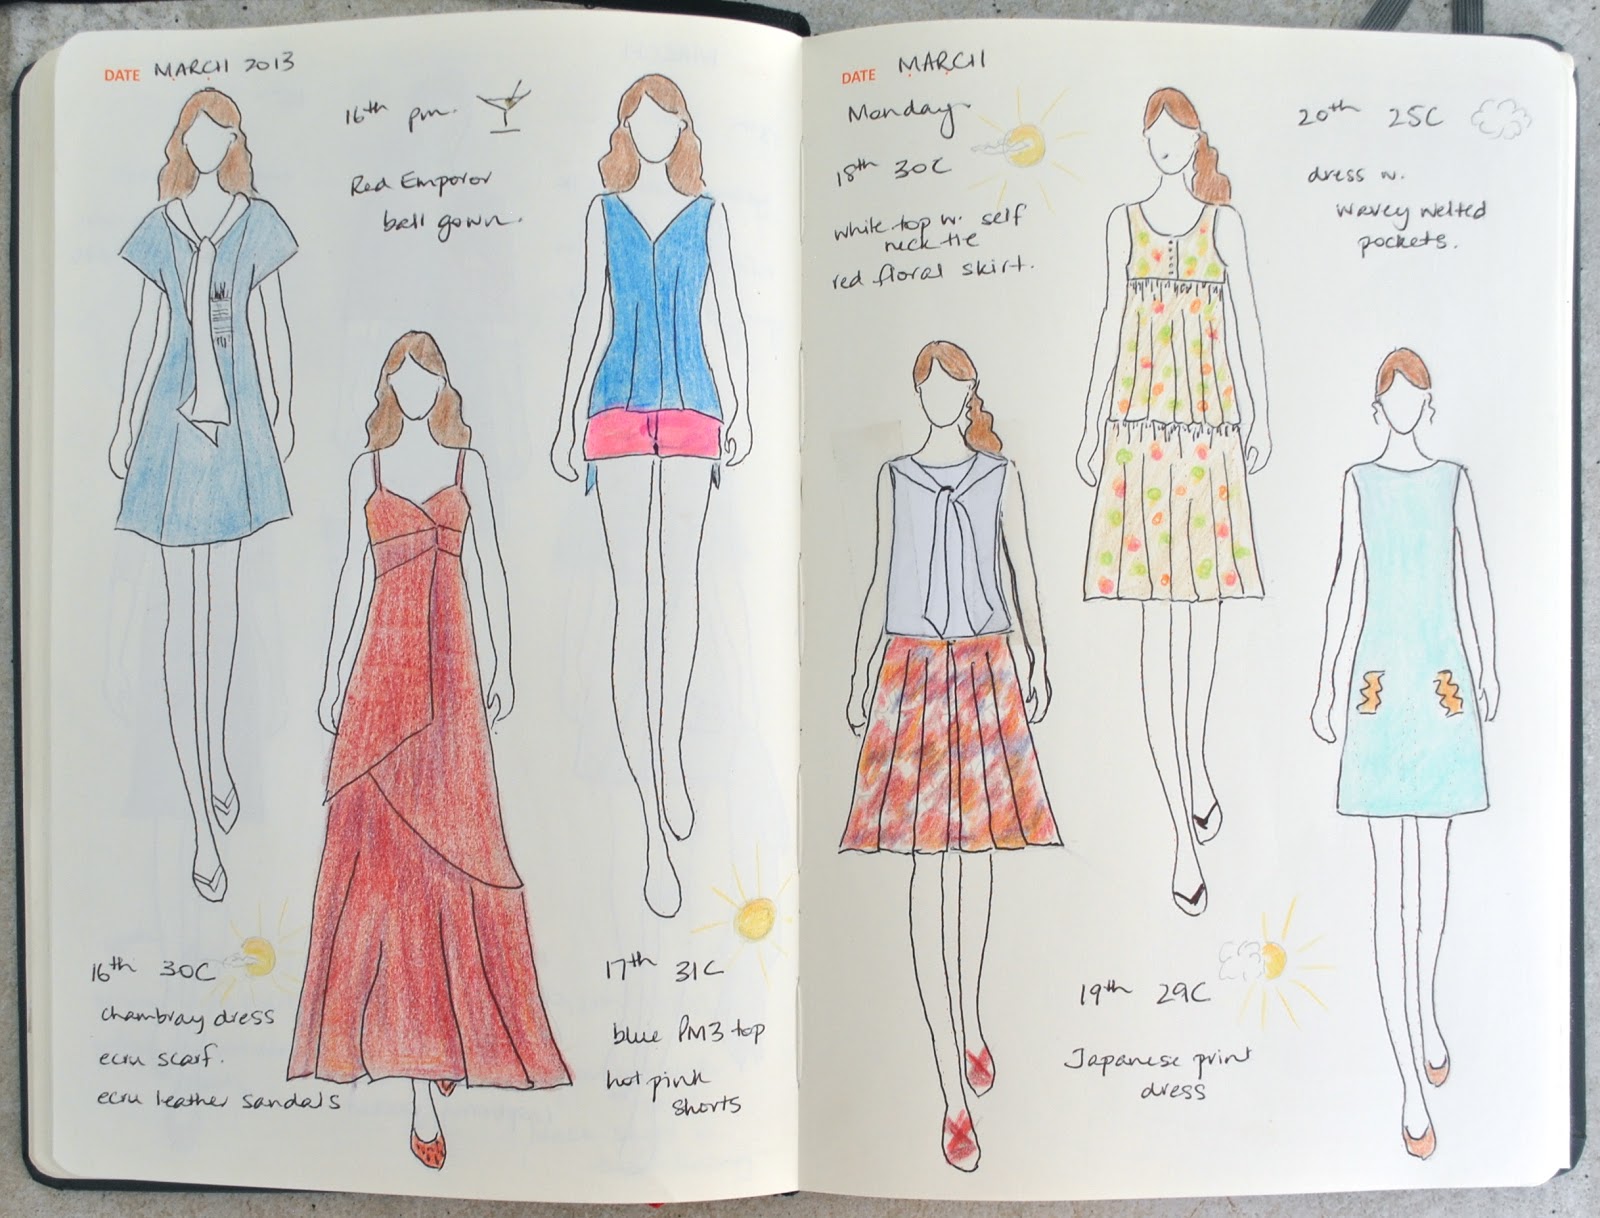 DATE MARCH 2013
16th pm.
Red Emperor
ball gown.
16th 30C
chambray dress
ecru scarf.
ecru leather sandals
17th 31C
blue PM3 top
hot pink
shorts
DATE MARCH
Monday
18th 30C
white top w. self
neck tie
red floral skirt.
19th 29C
Japanese print
dress
20th 25C
dress w.
wavey welted
pockets.